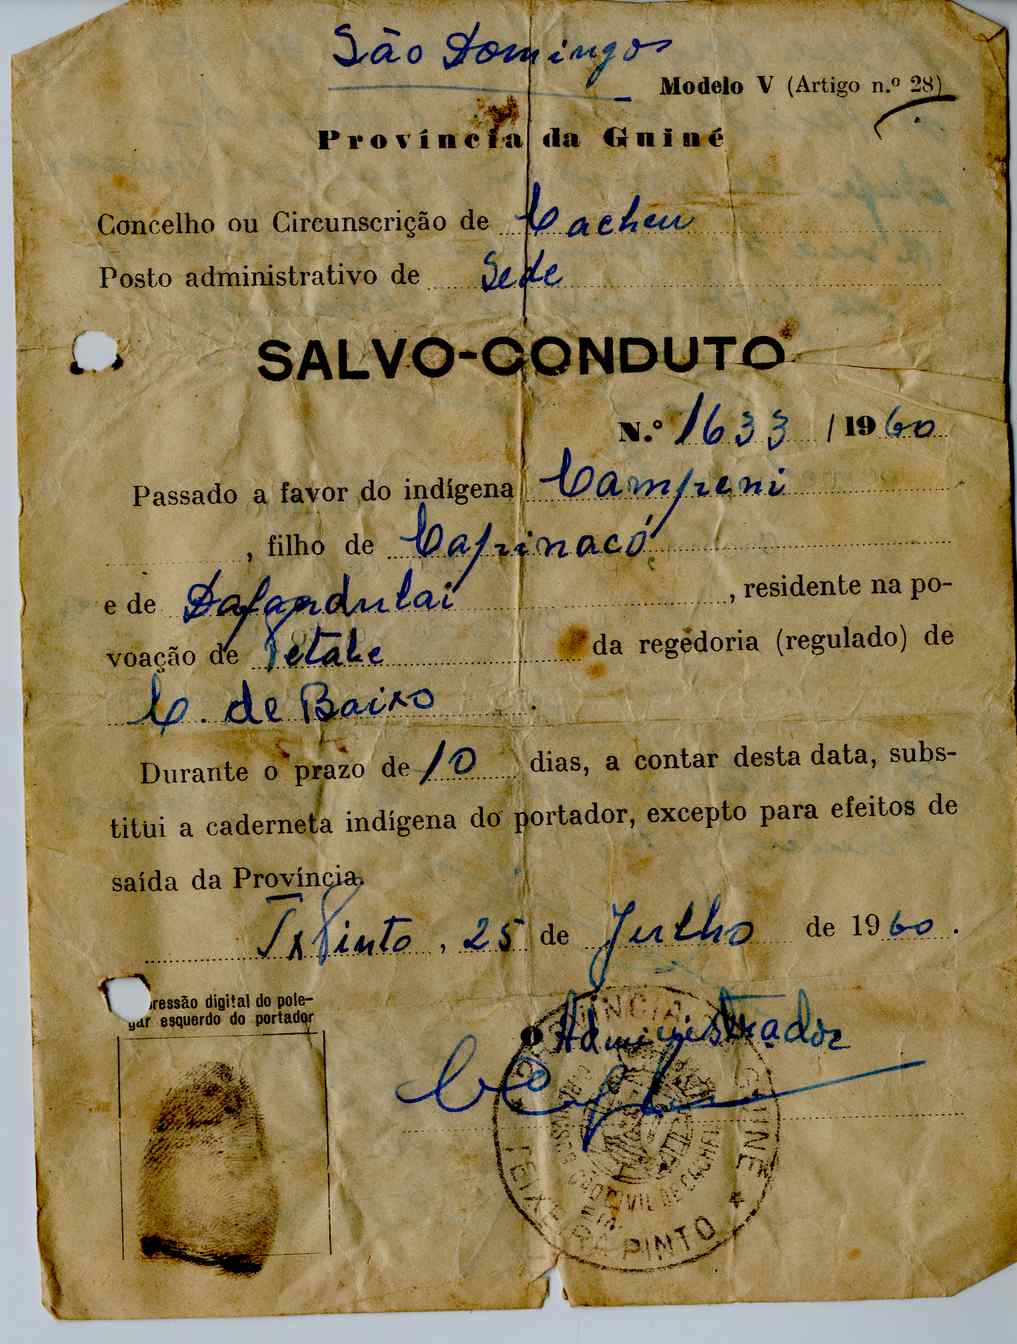 São Domingos
Modelo V (Artigo n.º 28)
Província da Guiné
Concelho ou Circunscrição de Cacheu
Posto administrativo de Sede
SALVO-CONDUTO
N.º 1633 / 1960
Passado a favor do indígena Campeni
, filho de Caprinacó
e de Dafandulai, residente na po-
voação de Petabe da regedoria (regulado) de
C. de Baixo.
Durante o prazo de 10 dias, a contar desta data, subs-
titui a caderneta indígena do portador, excepto para efeitos de
saída da Província.
Tx Pinto, 25 de Julho de 1960.
pressão digital do pole-
gar esquerdo do portador
O Administrador
PROVINCIA DA GUINÉ * TEIXEIRA PINTO *